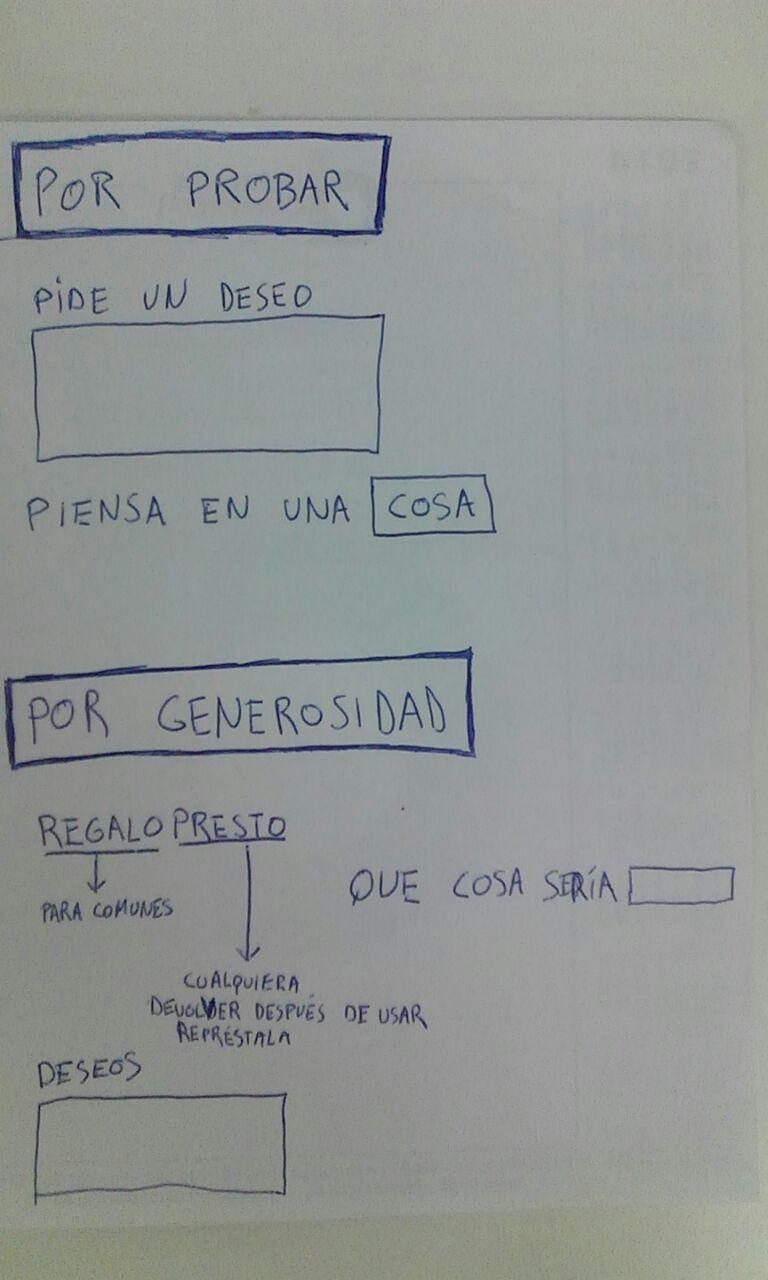 POR PROBAR
PIDE UN DESEO
PIENSA EN UNA COSA
POR GENEROSIDAD
REGALO PRESTO
PARA COMUNES
QUE COSA SERÍA
CUALQUIERA
DEVOLVER DESPUÉS DE USAR
REPRÉSTALA
DESEOS